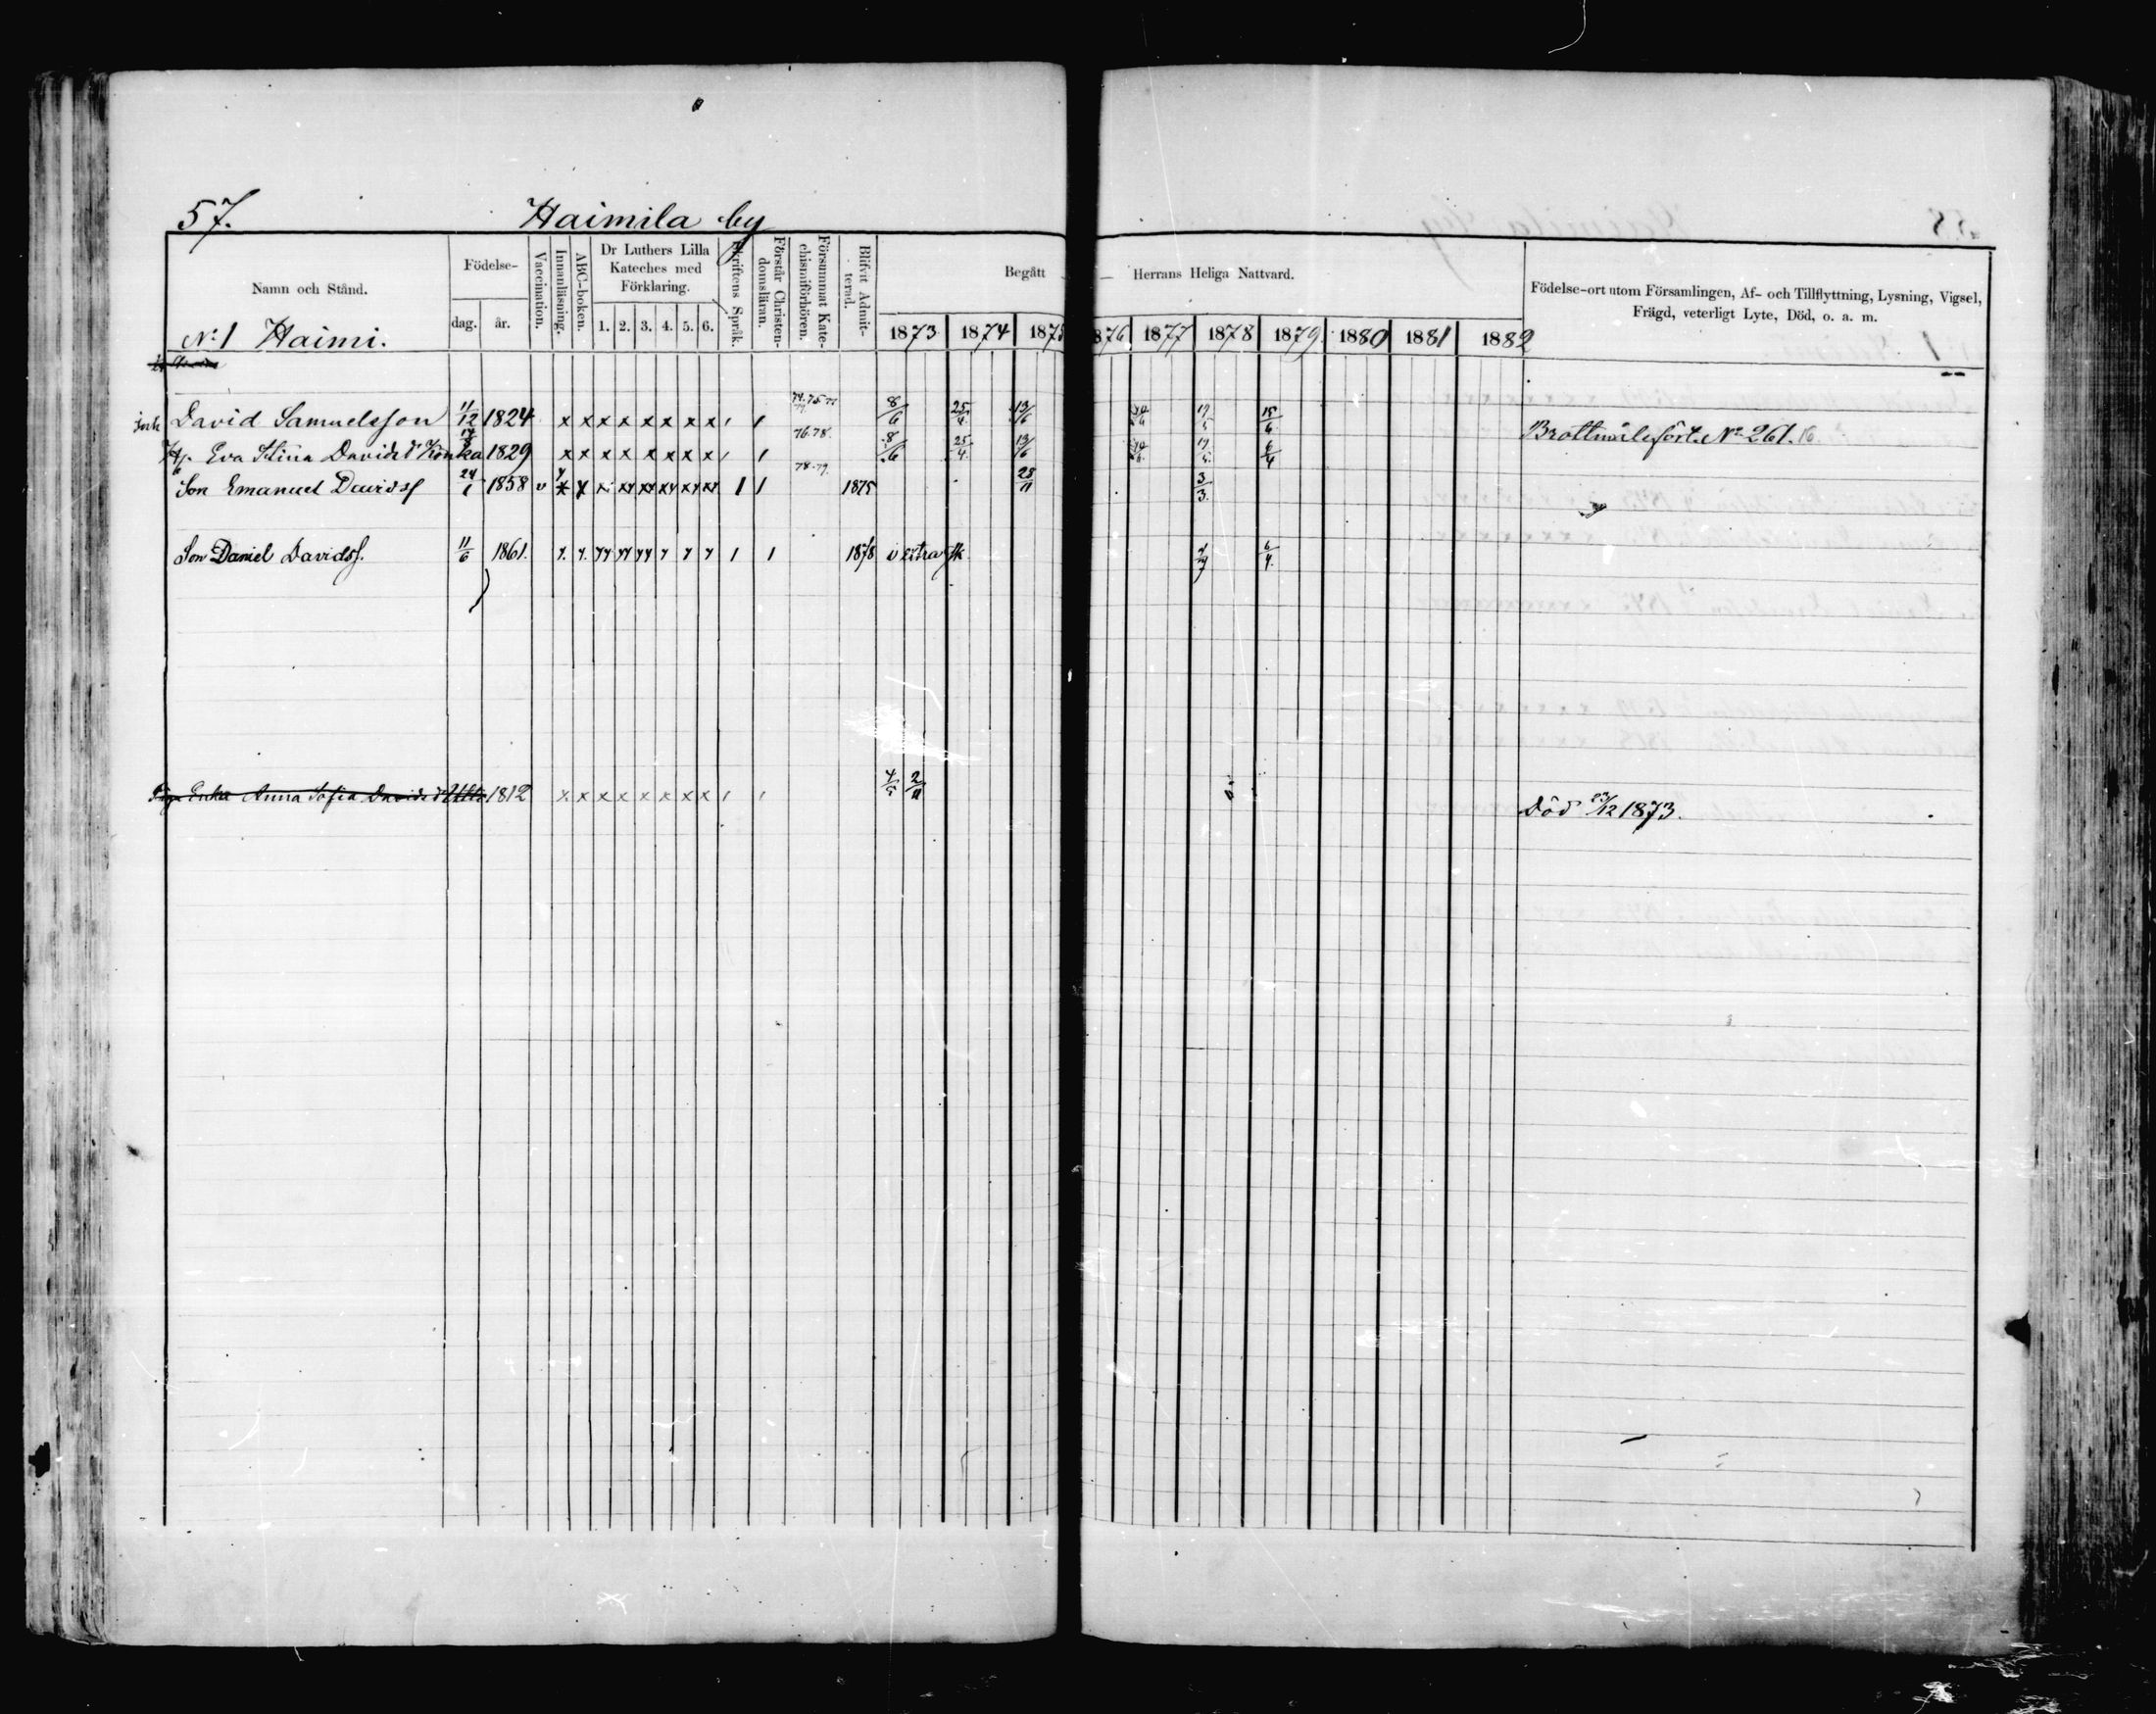 57. Haimila by
Namn och Stånd.
Födelse-
dag. år.
Vaccination.
Innanläsning.
ABC-boken.
Dr Luthers Lilla
Kateches med
Förklaring.
1. 2. 3. 4. 5. 6.
Skriftens Språk.
Förstår Christen-
domsläran.
Försummat Kate-
chismiförhören.
Blifvit Admit-
terad.
Begått — Herrans Heliga Nattvard.
1873 1874 1875 1876 1877 1878 1879 1880 1881 1882
Födelse-ort utom Församlingen, Af- och Tillflyttning, Lysning, Vigsel,
Frägd, veterligt Lyte, Död, o. a. m.
No 1 Haimi.
David Samuelsson 11/12 1824 x x x x x x x x 8/6 25/4 13/6 Brottmålsfört. No 261.
Eva Stina Davidsd 1829 x x x x x x x x 76.78. 8/6 25/4 13/6 6/4
Son Emanuel Davidss 24/1 1858 v 78-79. 1875 28/11 3/3.
Son Daniel Davidss. 11/6 1861. 1878 i extra sk 6/4.
Enka Anna Sofia Davidsd 1812 x x x x x x x x 4/5 2/11 Död 23/12 1873.